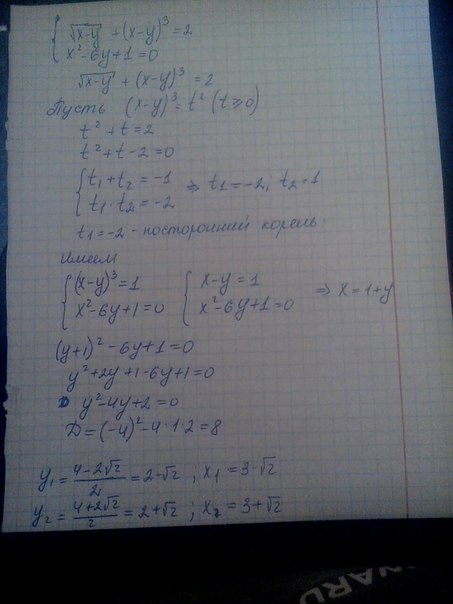 { √x-y + (x-y)³ = 2
x² - 6y + 1 = 0
√x-y + (x-y)³ = 2
Пусть (x-y)³ = t² (t ≥ 0)
t² + t = 2
t² + t - 2 = 0
{ t₁ + t₂ = -1 ⇒ t₁ = -2; t₂ = 1
t₁ · t₂ = -2
t₁ = -2 - посторонний корень.
Имеем
{ (x-y)³ = 1 { x - y = 1 ⇒ x = 1 + y
x² - 6y + 1 = 0 x² - 6y + 1 = 0
(y+1)² - 6y + 1 = 0
y² + 2y + 1 - 6y + 1 = 0
y² - 4y + 2 = 0
D = (-4)² - 4·1·2 = 8
y₁ = (4 - 2√2)/2 = 2 - √2 ; x₁ = 3 - √2
y₂ = (4 + 2√2)/2 = 2 + √2 ; x₂ = 3 + √2